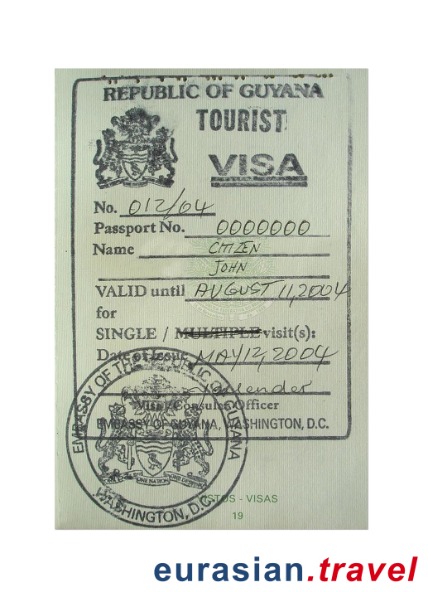 REPUBLIC OF GUYANA
TOURIST
VISA
No. 012/04
Passport No. 0000000
Name CITIZEN
JOHN
VALID until AUGUST 11, 2004
for
SINGLE / MULTIPLE visit(s):
Date of issue MAY 12, 2004
Consular Officer
EMBASSY OF GUYANA, WASHINGTON, D.C.
EMBASSY OF THE REPUBLIC OF GUYANA
WASHINGTON, D.C.
VISTOS - VISAS
19
eurasian.travel